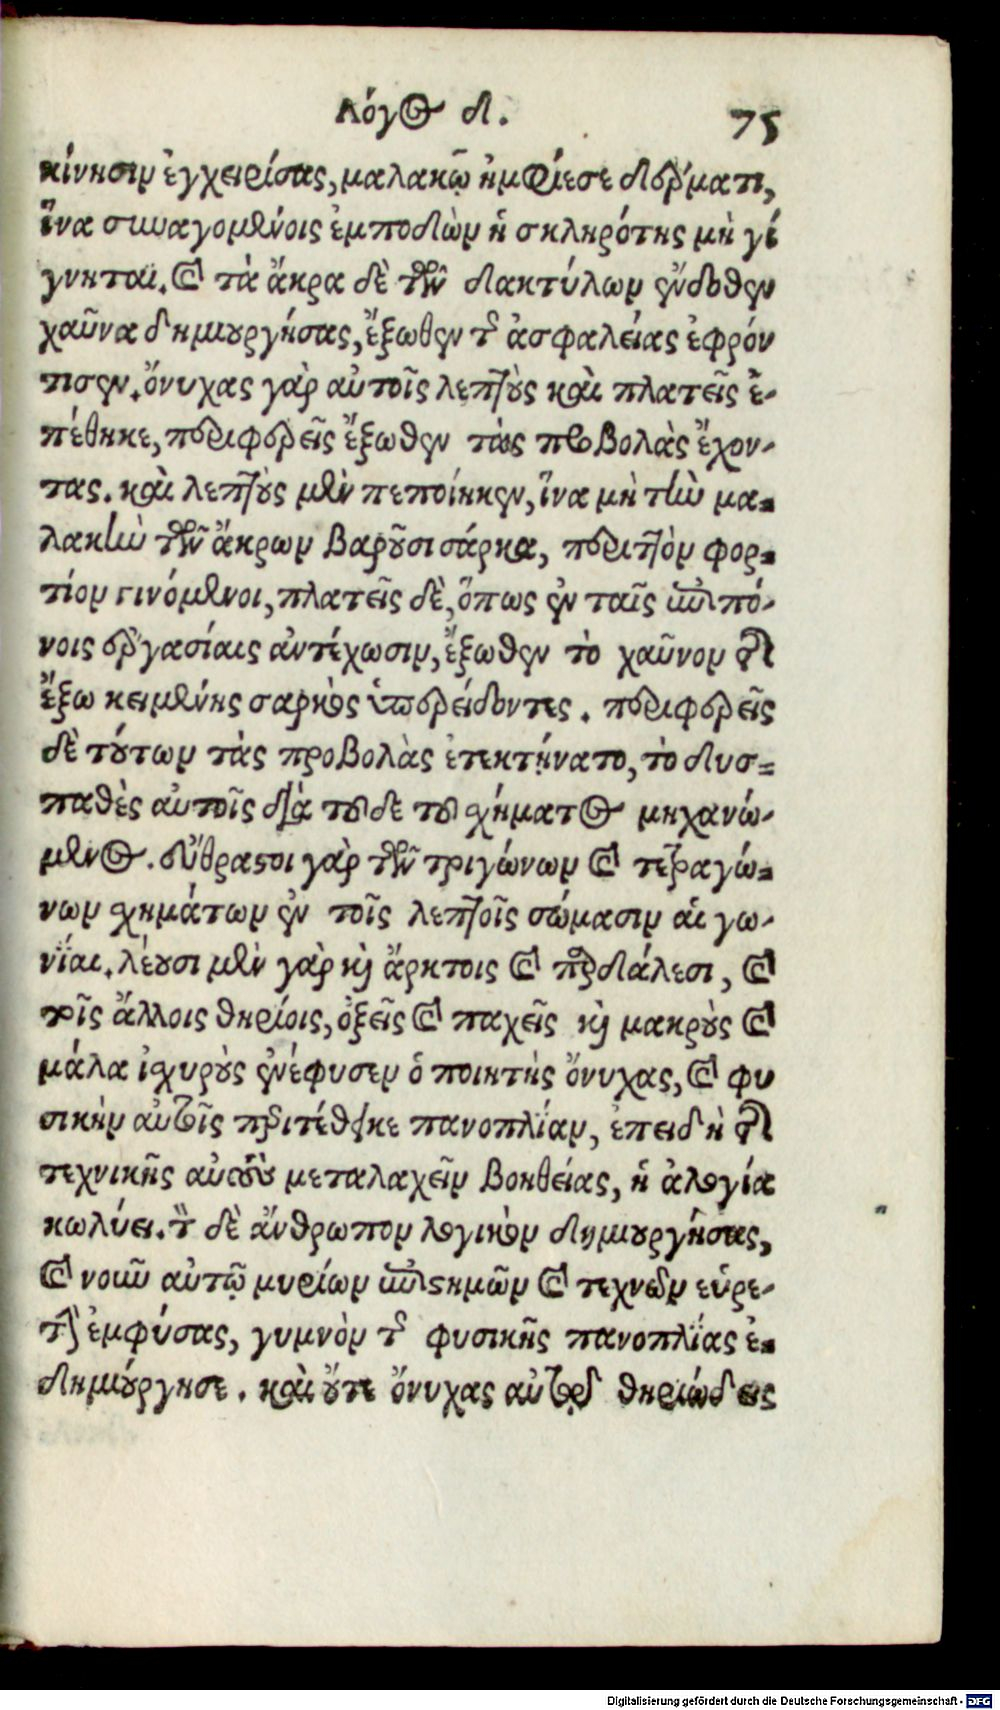 Λόγος δ. 75
κίνησιν ἐγχειρίσας, μαλακῷ ἠμφίεσε δέρματι,
ἵνα συναγομένοις ἐμποδὼν ἡ σκληρότης μὴ γί
γνηται. καὶ τὰ ἄκρα δὲ τῶν δακτύλων ἔνδοθεν
χαῦνα δημιουργήσας, ἔξωθεν τῆς ἀσφαλείας ἐφρόν
τισεν. ὄνυχας γὰρ αὐτοῖς λεπτοὺς καὶ πλατεῖς ἐ-
πέθηκε, περιφερεῖς ἔξωθεν τὰς προβολὰς ἔχον-
τας. καὶ λεπτοὺς μὲν πεποίηκεν, ἵνα μὴ τὴν μα-
λακὴν τῶν ἄκρων βαροῦσι σάρκα, περιττὸν φορ-
τίον γινόμενοι, πλατεῖς δὲ, ὅπως ἐν ταῖς ἐπιπό-
νοις ἐργασίαις ἀντέχωσιν, ἔξωθεν τὸ χαῦνον τῆς
ἔξω κειμένης σαρκὸς ὑπερείδοντες. περιφερεῖς
δὲ τούτων τὰς προβολὰς ἐτεκτήνατο, τὸ δυσ-
παθὲς αὐτοῖς διὰ τοῦδε τοῦ σχήματος μηχανώ-
μενος. εὔθραστοι γὰρ τῶν τριγώνων καὶ τετραγώ-
νων σχημάτων ἐν τοῖς λεπτοῖς σώμασιν αἱ γω-
νίαι. λέουσι μὲν γὰρ καὶ ἄρκτοις καὶ παρδάλεσι, καὶ
τοῖς ἄλλοις θηρίοις, ὀξεῖς καὶ παχεῖς καὶ μακροὺς καὶ
μάλα ἰσχυροὺς ἐνέφυσεν ὁ ποιητὴς ὄνυχας, καὶ φυ
σικὴν αὐτοῖς περιτέθεικε πανοπλίαν, ἐπειδὴ τῆς
τεχνικῆς αὐτοὺς μεταλαχεῖν βοηθείας, ἡ ἀλογία
κωλύει. τὸν δὲ ἄνθρωπον λογικὸν δημιουργήσας,
καὶ νοῦν αὐτῷ μυρίων ἐπιστημῶν καὶ τεχνῶν εὑρε-
τὴν ἐμφύσας, γυμνὸν τῆς φυσικῆς πανοπλίας ἐ-
δημιούργησε. καὶ οὔτε ὄνυχας αὐτῷ θηριώδεις
Digitalisierung gefördert durch die Deutsche Forschungsgemeinschaft - DFG